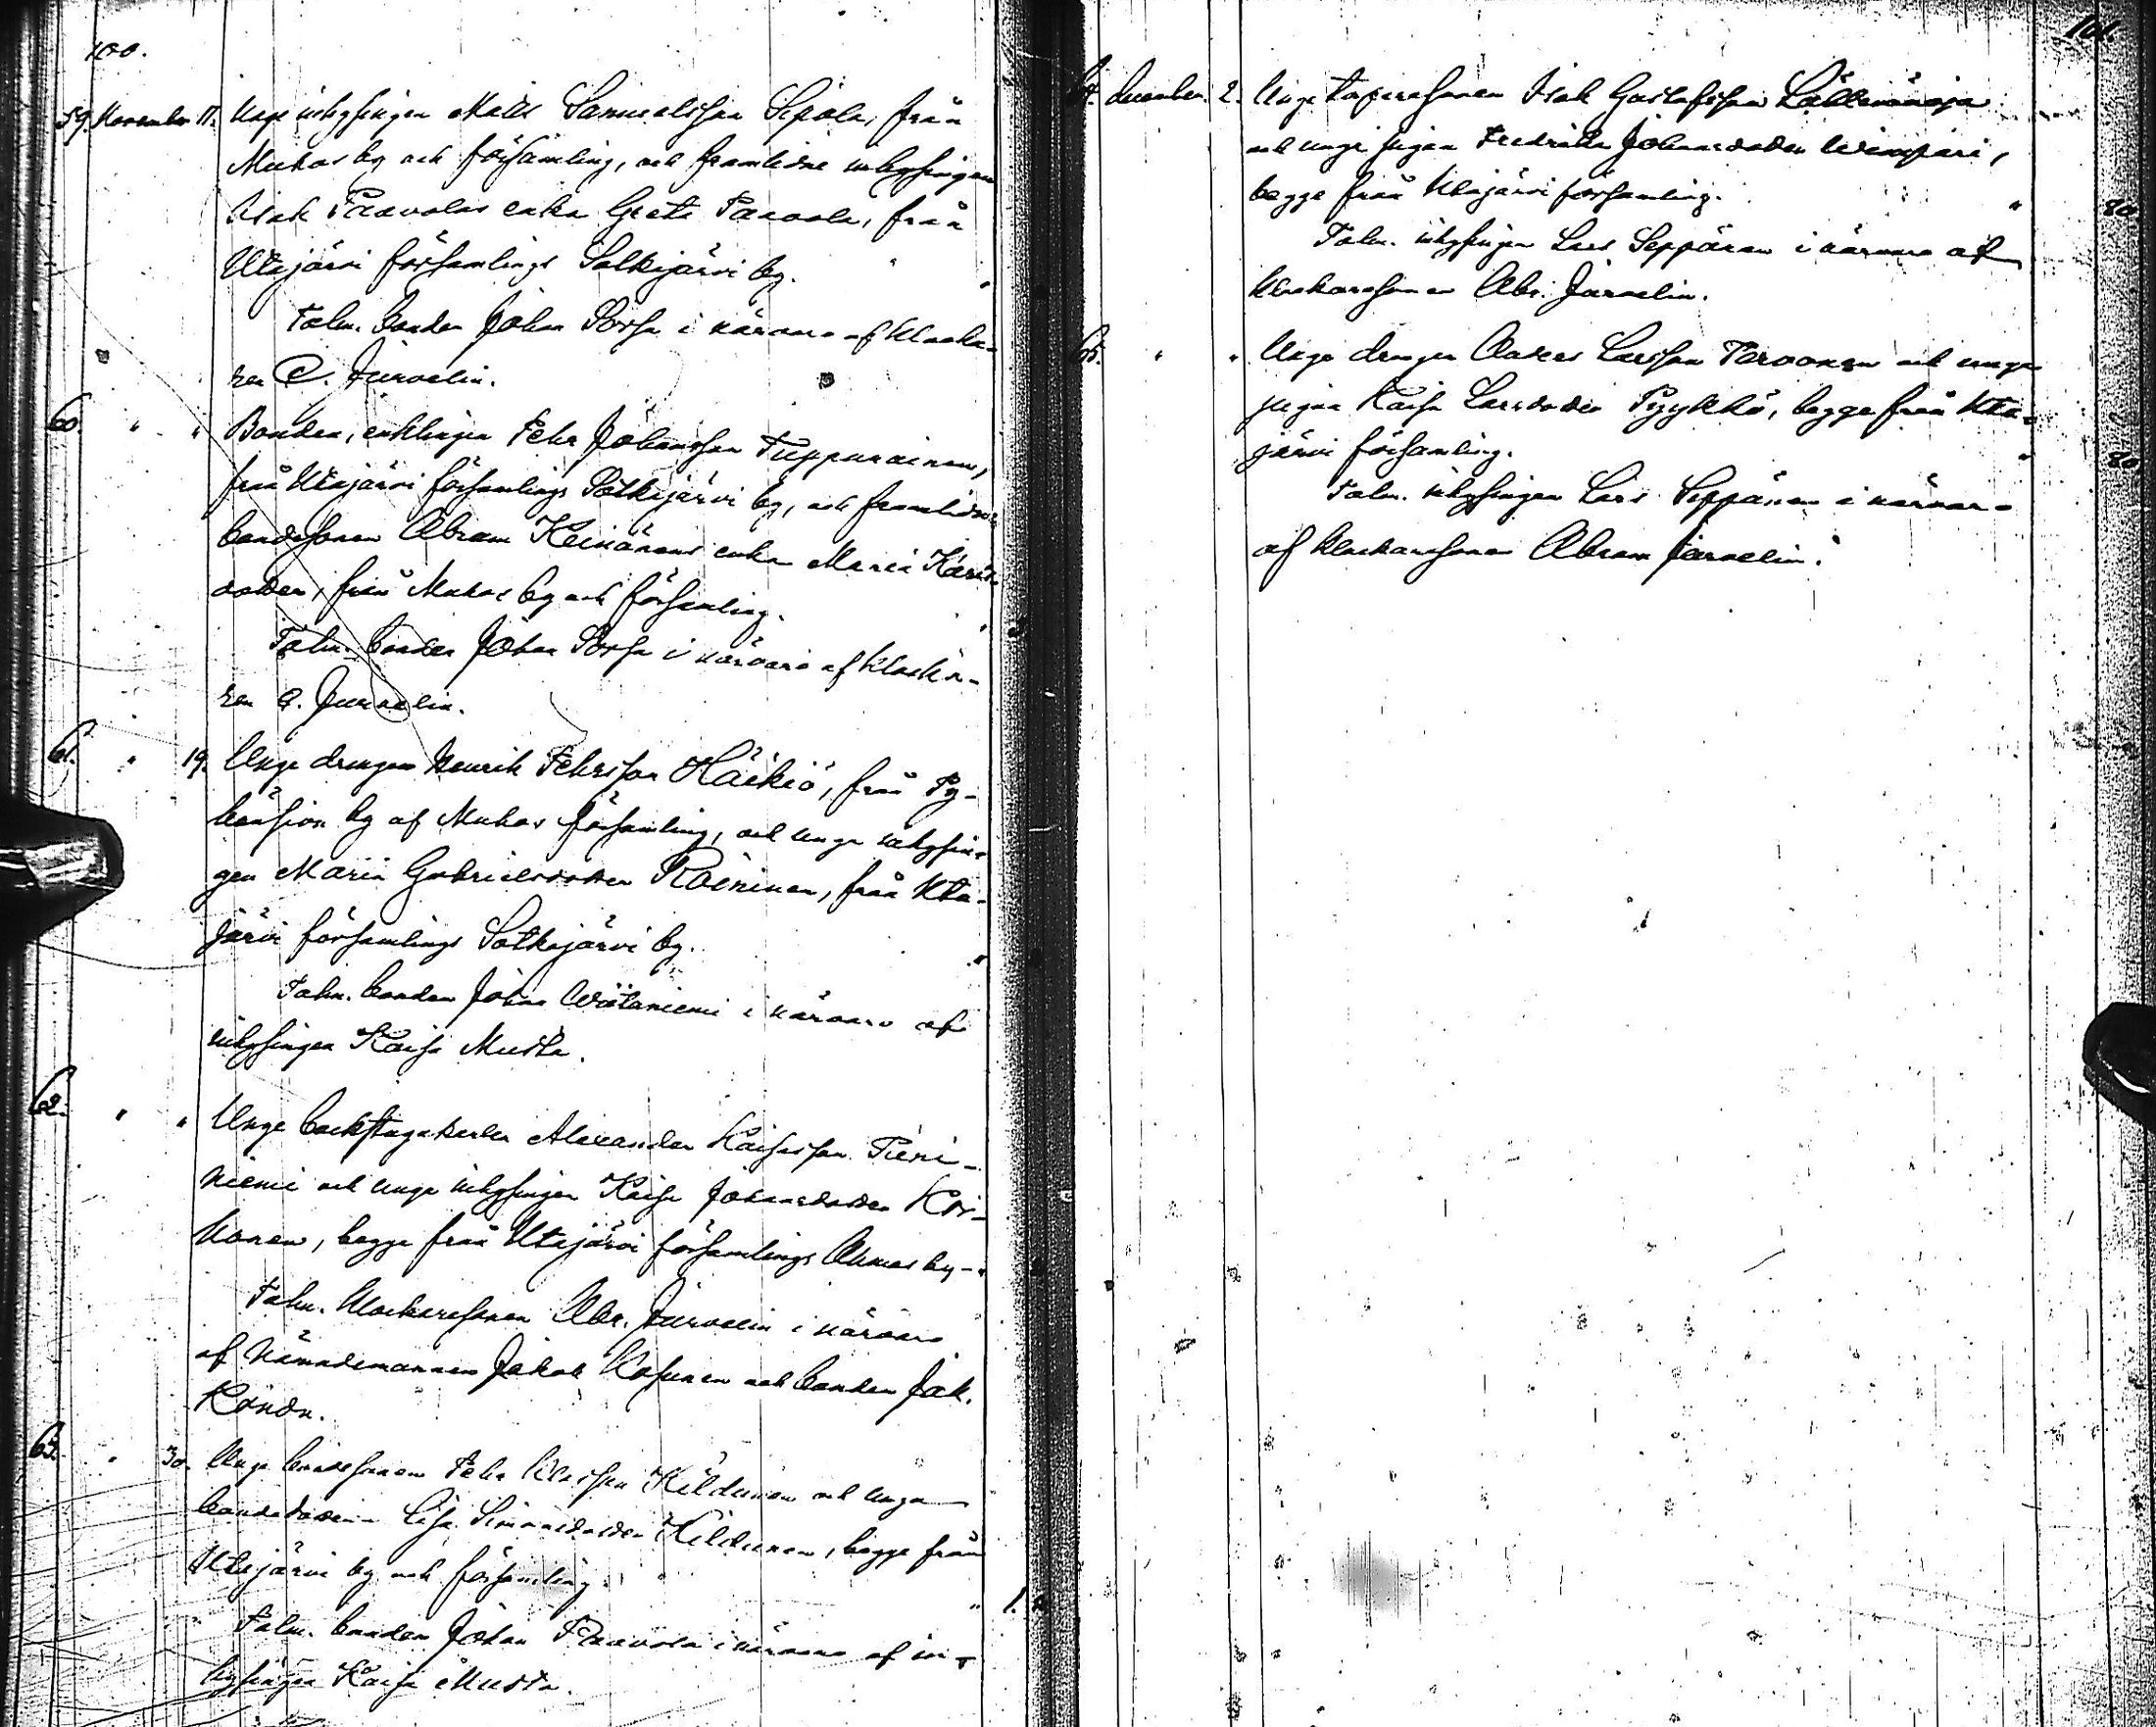 100.
59. November 11. Unge inhysingen Matts Samuelsson Sipola, från
Muhos by och församling, och framlidne inhysingen
Isak Paavolas enka Greta Paavola, från
Utajärvi församlings Sotkajärvi by. "
Talm. bonden Johan Sorsa i närvaro af klocka-
ren C. Jurvelin.
60. " " Bonden, enklingen Petter Johansson Tuppurainen,
från Utajärvi församlings Sotkajärvi by, och framlidne
bondesonen Abram Keinänens enka Maria
dotter, från Muhos by och församling. "
Talm. bonden Johan Sorsa i närvaro af klocka-
ren C. Jurvelin.
61. " 19. Unge drengen Henrik Petersson Häikiö, från Py-
by af Muhos församling, och unge inhysin-
gen Maria Gabrielsdotter Roininen, från Uta-
järvi församlings Sotkajärvi by. "
Talm. bonden Johan i närvaro af
inhysingen Kaisa Musta.
62. " " Unge backstugukarlen Alexander Kaisasson Pieni-
niemi och unge inhysingen Kaisa Johansdotter Kor-
honen, begge från Utajärvi församlings Ahmas by. "
Talm. klockaresonen Abr. Jurvelin i närvaro
af nämndemannen Jakob Kosunen och bonden Jak.
63. " 30. Unge bondesonen Petter Kildunen och unga
bondedottern Lisa Simonsdotter Kildunen, begge från
Utajärvi by och församling. " 1.
Talm. bonden Johan Paavola i närvaro af in-
hysingen Kaisa Musta.
101.
64. December. 2. Unge torparesonen Isak Gustafsson
och unge pigan Fredrika Johansdotter Wimpari,
begge från Utajärvi församling. " 80
Talm. inhysingen Lars Seppänen i närvaro af
klockaresonen Abr. Jurvelin.
65. " " Unge drengen Anders Larsson Tervonen och unga
pigan Kaisa Larsdotter Pyykkö, begge från Uta-
järvi församling. " 80
Talm. inhysingen Lars Seppänen i närvaro
af klockaresonen Abram Jurvelin.